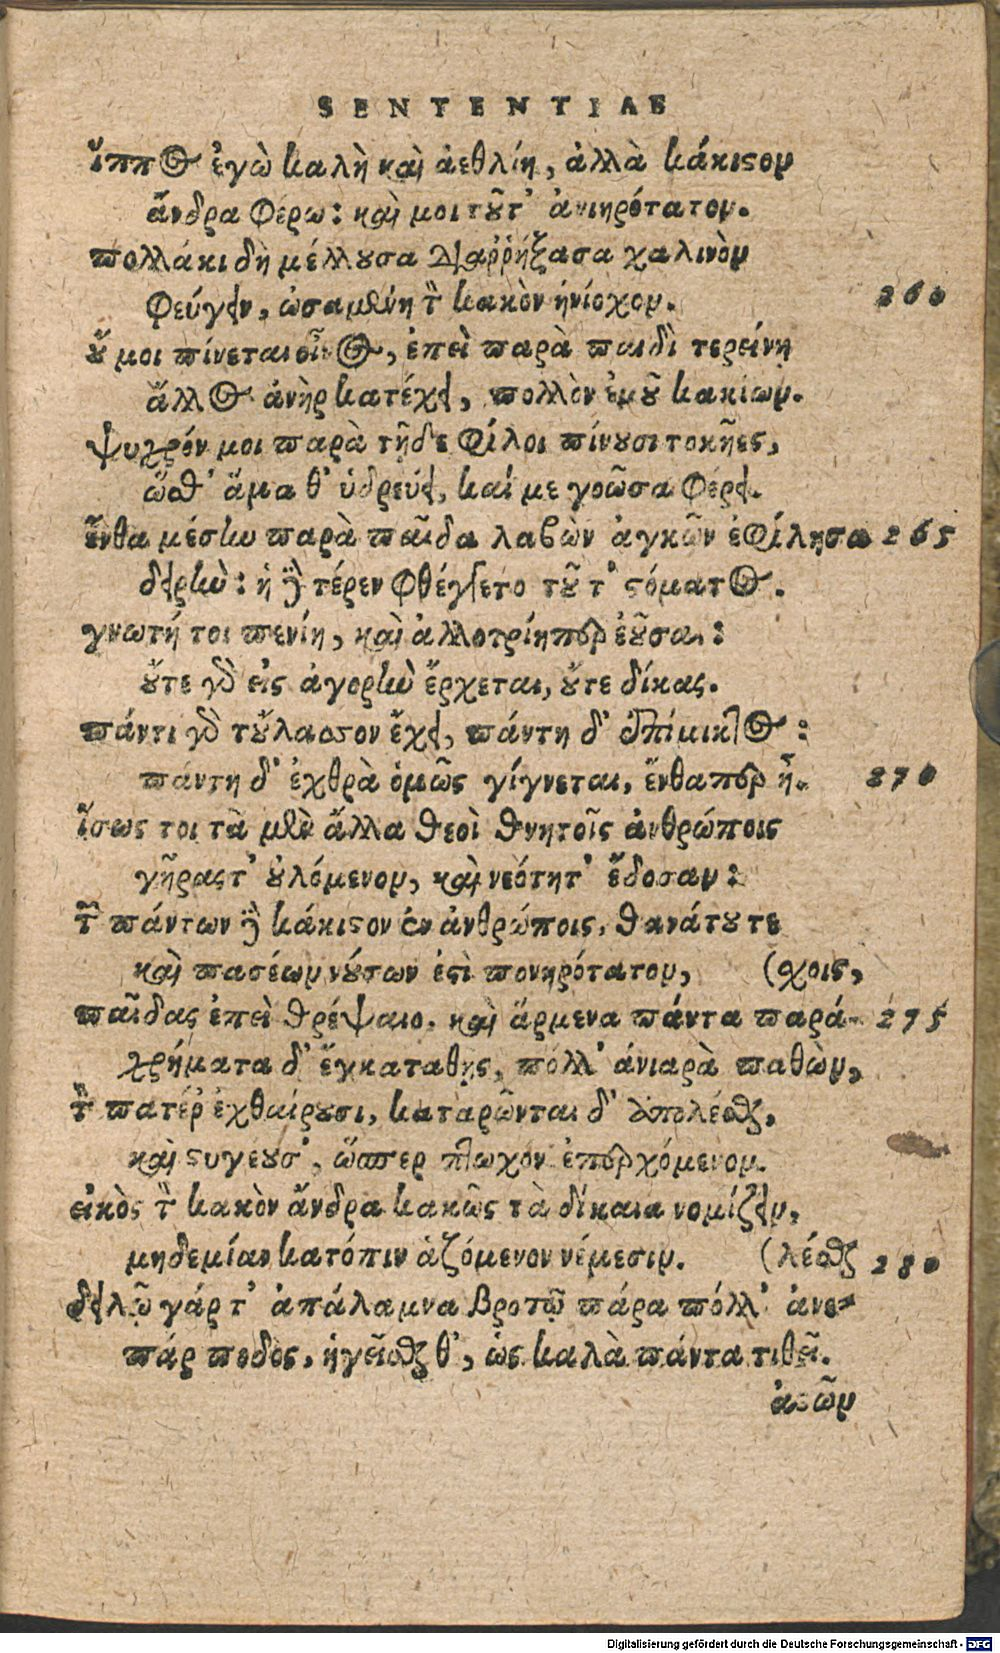 SENTENTIAE
ἵππος ἐγὼ καλὴ καὶ ἀεθλίη, ἀλλὰ κάκιστον
ἄνδρα φέρω: καὶ μοι τοῦτ' ἀνιηρότατον.
πολλάκι δὴ μέλλουσα διαῤῥήξασα χαλινὸν 260
φεύγειν, ὠσαμένη τὸν κακὸν ἡνίοχον.
οὔ μοι πίνεται οἶνος, ἐπεὶ παρὰ παιδὶ τερείνῃ
ἄλλος ἀνὴρ κατέχει, πολλὸν ἐμοῦ κακίων.
ψυχρόν μοι παρὰ τῇδε φίλοι πίνουσι τοκῆες,
ὥσθ' ἅμα θ' ὑδρεύει, καί με γοῶσα φέρει.
ἔνθα μέσην παρὰ παῖδα λαβὼν ἀγκῶν ἐφίλησα 265
δειρὴν: ἡ δὲ τέρεν φθέγγετο τοῦ τ' στόματος.
γνωτή τοι πενίη, καὶ ἀλλοτρίη περ ἐοῦσα:
οὔτε γὰρ εἰς ἀγορὴν ἔρχεται, οὔτε δίκας.
πάντι γὰρ τοὔλασσον ἔχει, πάντη δ' ἐπίμικτος:
πάντη δ' ἐχθρὰ ὁμῶς γίγνεται, ἔνθαπερ ᾖ. 270
ἴσως τοι τὰ μὲν ἄλλα θεοὶ θνητοῖς ἀνθρώποις
γῆράς τ' οὐλόμενον, καὶ νεότητ' ἔδοσαν:
τῶν πάντων δὲ κάκιστον ἐν ἀνθρώποις, θανάτου τε
καὶ πασέων νούσων ἐστὶ πονηρότατον, (χοις,
παῖδας ἐπεὶ θρέψαιο, καὶ ἄρμενα πάντα παρά- 275
χρήματα δ' ἔγκαταθῃς, πόλλ' ἀνιαρὰ παθὼν,
τὸν πατέρ' ἐχθαίρουσι, καταρῶνται δ' ἀπολέσθαι,
καὶ στυγέουσ', ὥσπερ πτωχὸν ἐπερχόμενον.
εἰκὸς τὸν κακὸν ἄνδρα κακῶς τὰ δίκαια νομίζειν,
μηδεμίαν κατόπιν ἁζόμενον νέμεσιν. (λέσθαι 280
δειλῷ γάρ τ' ἀπάλαμνα βροτῷ πάρα πόλλ' ἀνε-
πάρ ποδὸς, ἡγεῖσθαι θ', ὡς καλὰ πάντα τιθεῖ.
ἀστῶν